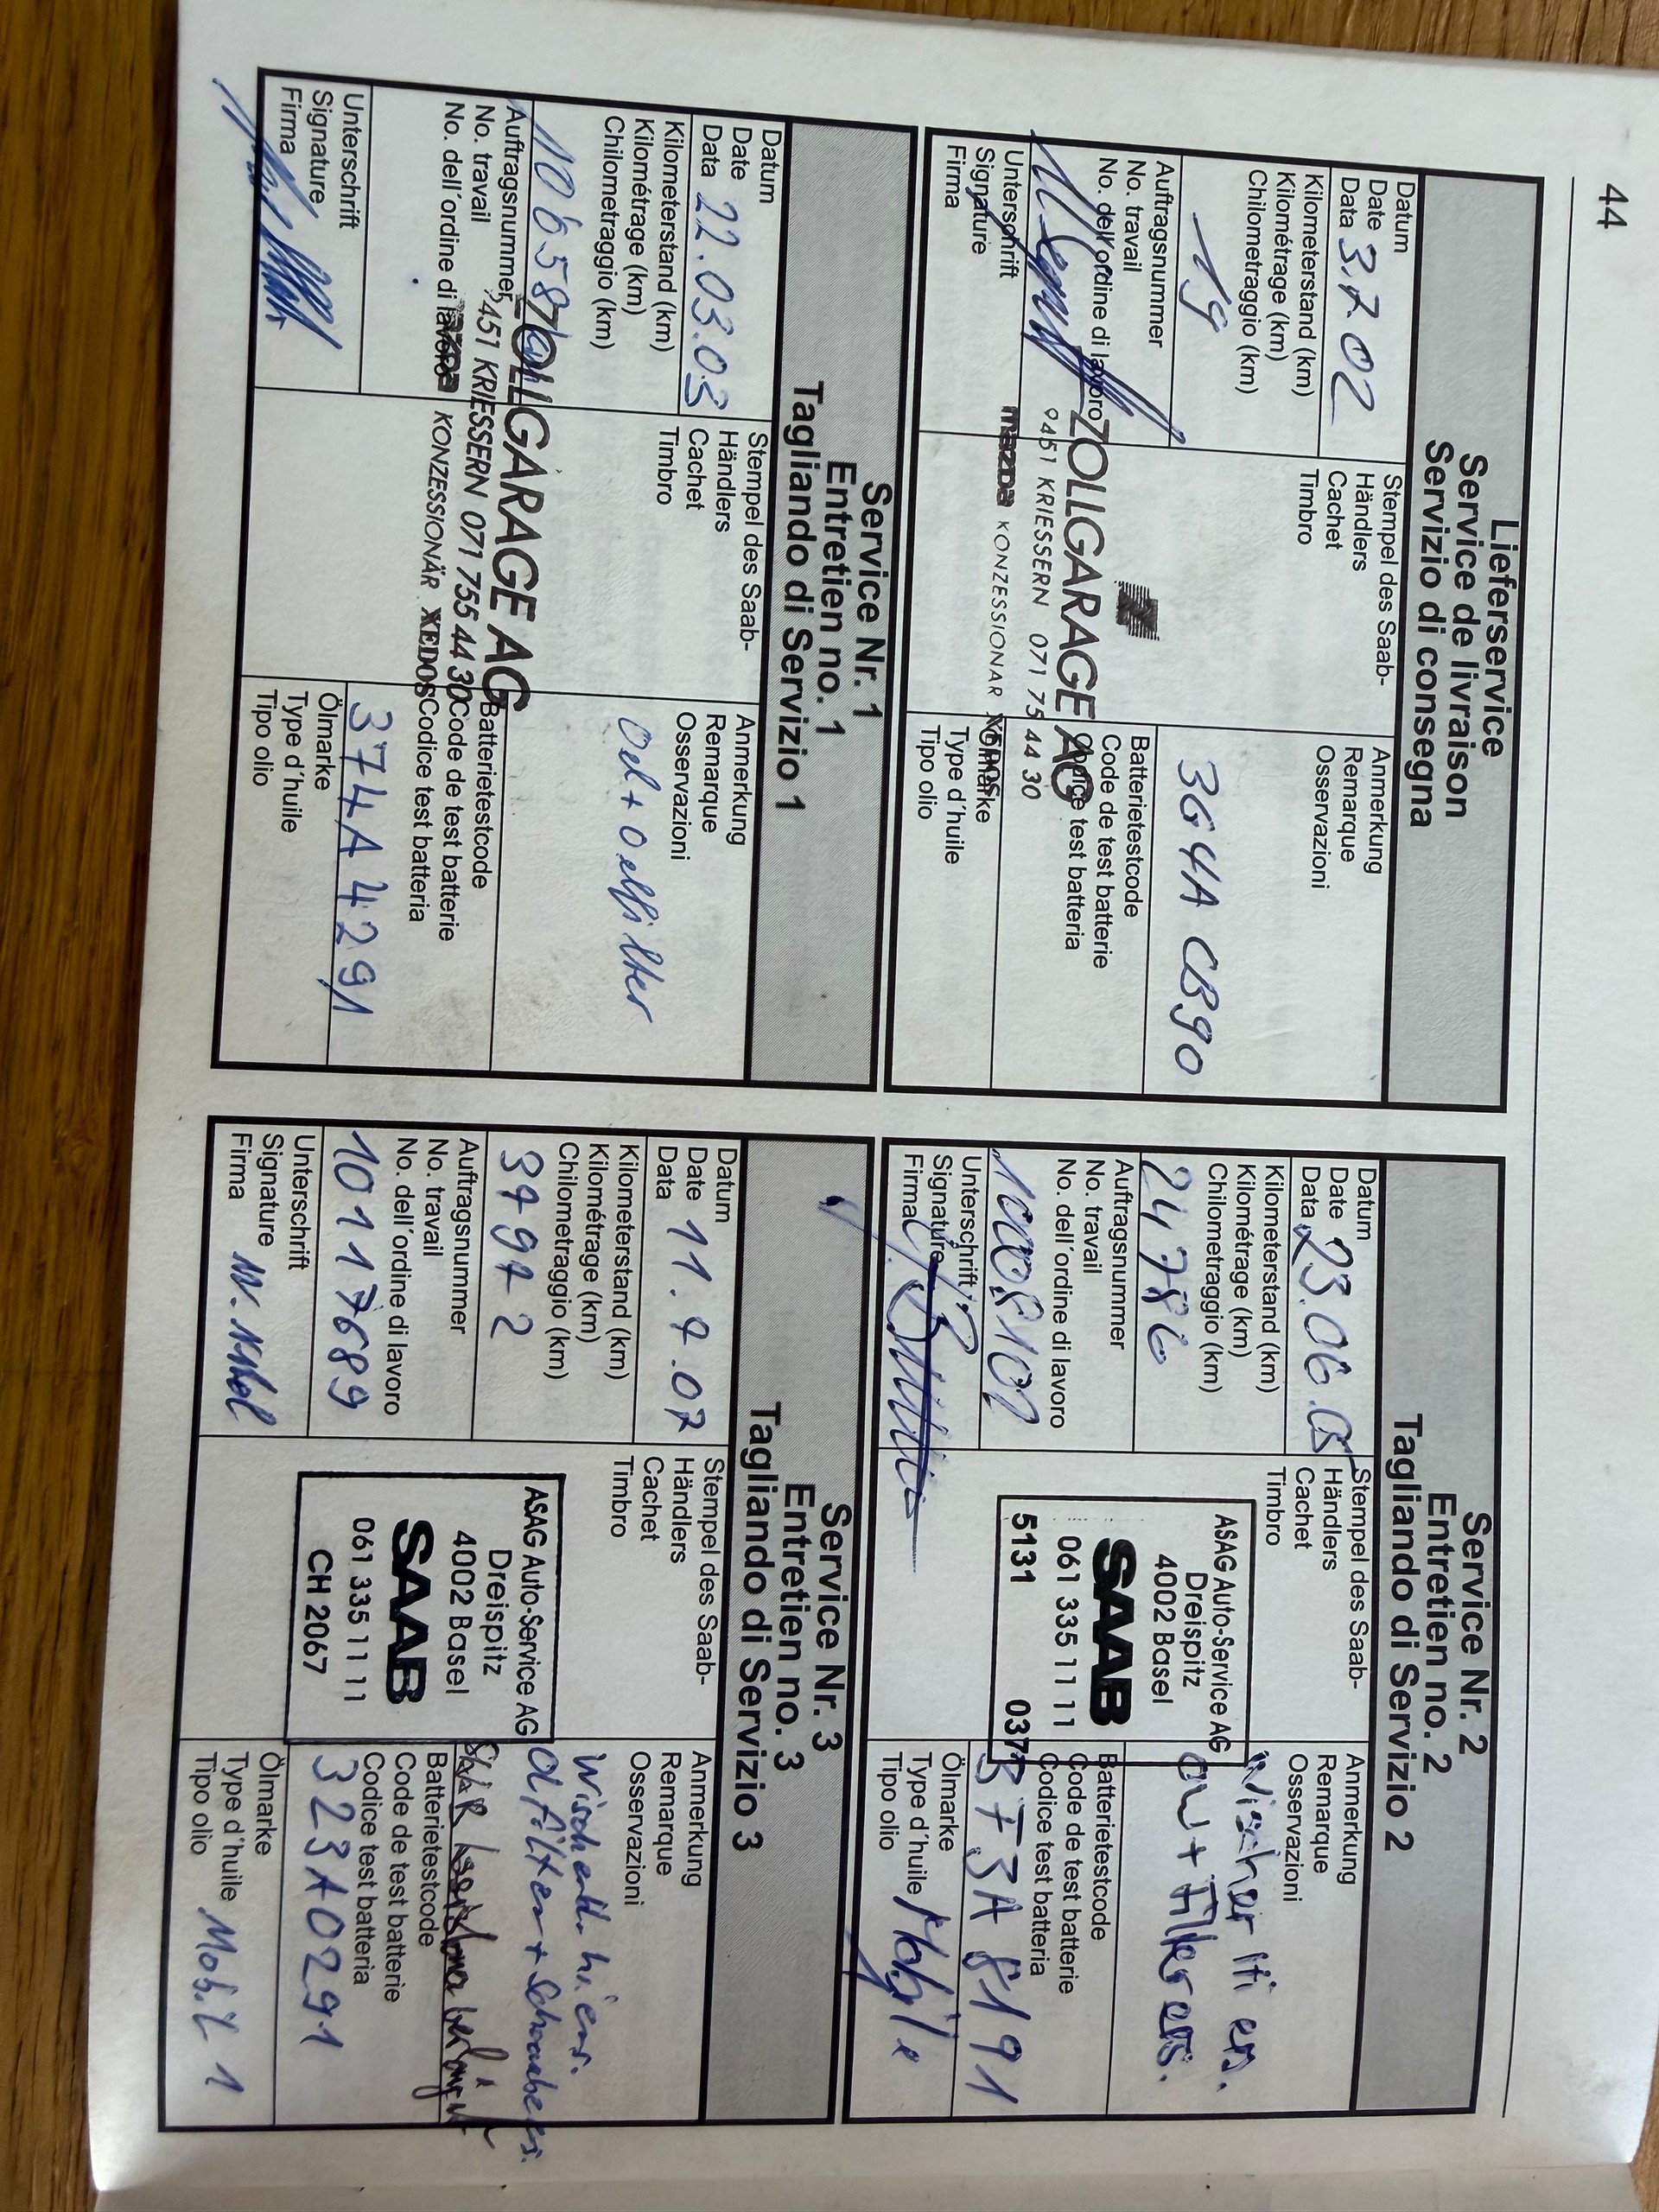 44
Lieferservice
Service de livraison
Servizio di consegna
Datum
Date
Data 3.7.02
Kilometerstand (km)
Kilométrage (km)
Chilometraggio (km)
19
Auftragsnummer
No. travail
No. dell'ordine di lavoro
Unterschrift
Signature
Firma
Stempel des Saab-
Händlers
Cachet
Timbro
ZOLLGARAGE AG
9451 KRIESSERN 071 75 44 30
mazda KONZESSIONÄR XEDOS
Anmerkung
Remarque
Osservazioni
364A CB90
Batterietestcode
Code de test batterie
Codice test batteria
Ölmarke
Type d'huile
Tipo olio
Service Nr. 1
Entretien no. 1
Tagliando di Servizio 1
Datum
Date
Data 22.03.03
Kilometerstand (km)
Kilométrage (km)
Chilometraggio (km)
10'658
Auftragsnummer
No. travail
No. dell'ordine di lavoro
Unterschrift
Signature
Firma
Stempel des Saab-
Händlers
Cachet
Timbro
ZOLLGARAGE AG
9451 KRIESSERN 071 755 44 30
mazda KONZESSIONÄR XEDOS
Anmerkung
Remarque
Osservazioni
Oel + Oelfilter
Batterietestcode
Code de test batterie
Codice test batteria
374A4291
Ölmarke
Type d'huile
Tipo olio
Service Nr. 2
Entretien no. 2
Tagliando di Servizio 2
Datum
Date
Data 23.06.05
Kilometerstand (km)
Kilométrage (km)
Chilometraggio (km)
24780
Auftragsnummer
No. travail
No. dell'ordine di lavoro
Unterschrift
Signature
Firma
Stempel des Saab-
Händlers
Cachet
Timbro
ASAG Auto-Service AG
Dreispitz
4002 Basel
SAAB
061 335 11 11
5131 037
Anmerkung
Remarque
Osservazioni
Wischer ers.
Öl + Filter ers.
Batterietestcode
Code de test batterie
Codice test batteria
373A8191
Ölmarke
Type d'huile
Tipo olio
Service Nr. 3
Entretien no. 3
Tagliando di Servizio 3
Datum
Date
Data 11.7.07
Kilometerstand (km)
Kilométrage (km)
Chilometraggio (km)
37972
Auftragsnummer
No. travail
No. dell'ordine di lavoro
10117689
Unterschrift
Signature
Firma
Stempel des Saab-
Händlers
Cachet
Timbro
ASAG Auto-Service AG
Dreispitz
4002 Basel
SAAB
061 335 11 11
CH 2067
Anmerkung
Remarque
Osservazioni
Wischerbl. hi ers.
Ölfilter + Schraube ers.
Batterietestcode
Code de test batterie
Codice test batteria
323A0291
Ölmarke
Type d'huile Mobil 1
Tipo olio